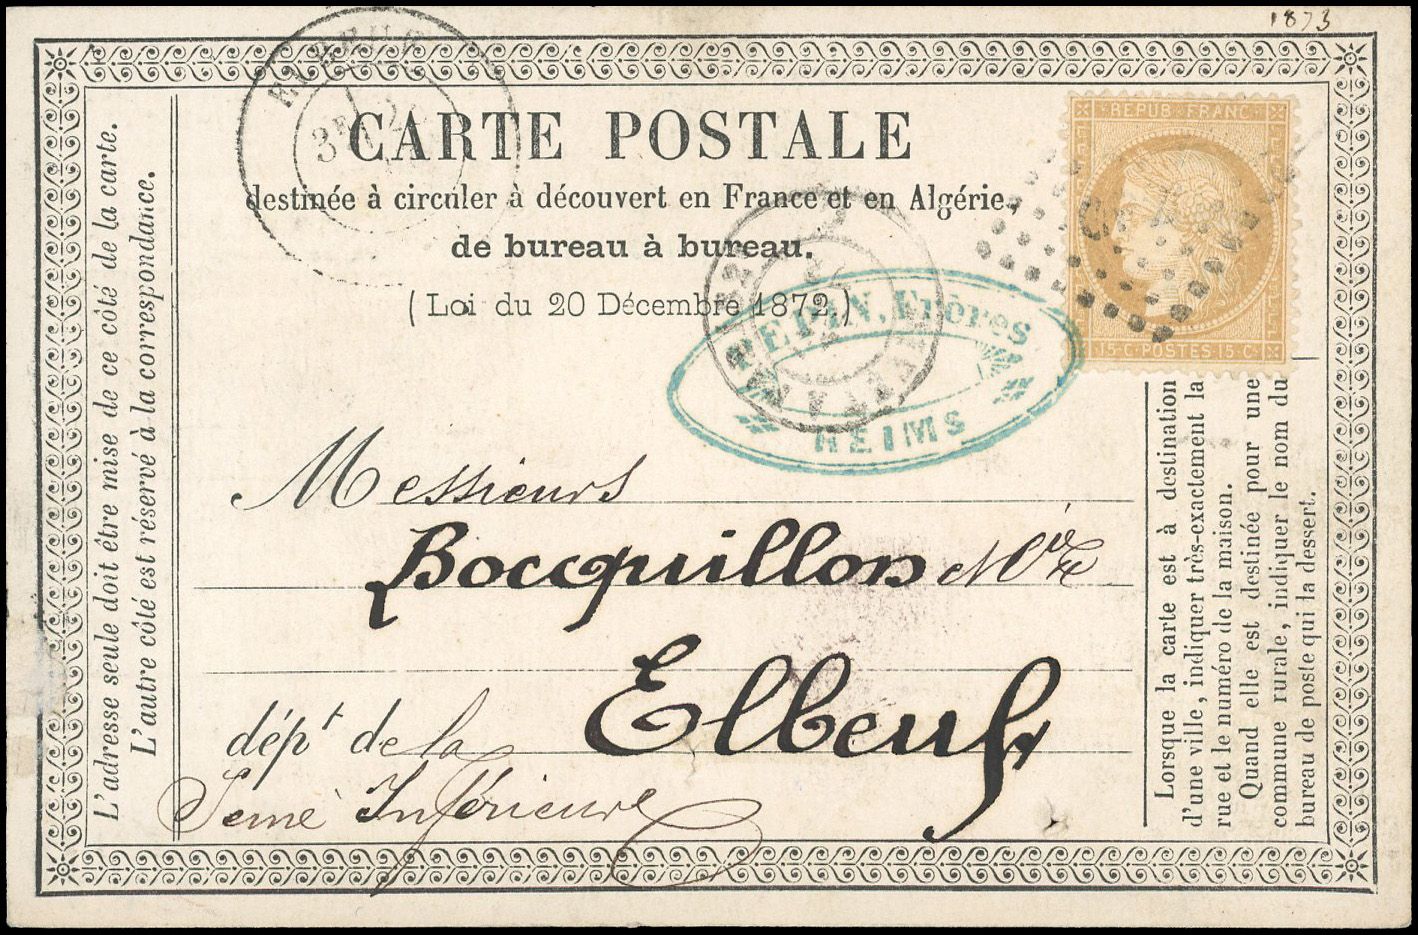 1873
CARTE POSTALE
destinée à circuler à découvert en France et en Algérie,
de bureau à bureau.
(Loi du 20 Décembre 1872.)
REPUB FRANC
15 C POSTES 15 C
Frères
REIMS
Messieurs
Bocquillon
Elbeuf
dépt de la
Seine Inférieure
L'adresse seule doit être mise de ce côté de la carte.
L'autre côté est réservé à la correspondance.
Lorsque la carte est à destination
d'une ville, indiquer très-exactement la
rue et le numéro de la maison.
Quand elle est destinée pour une
commune rurale, indiquer le nom du
bureau de poste qui la dessert.